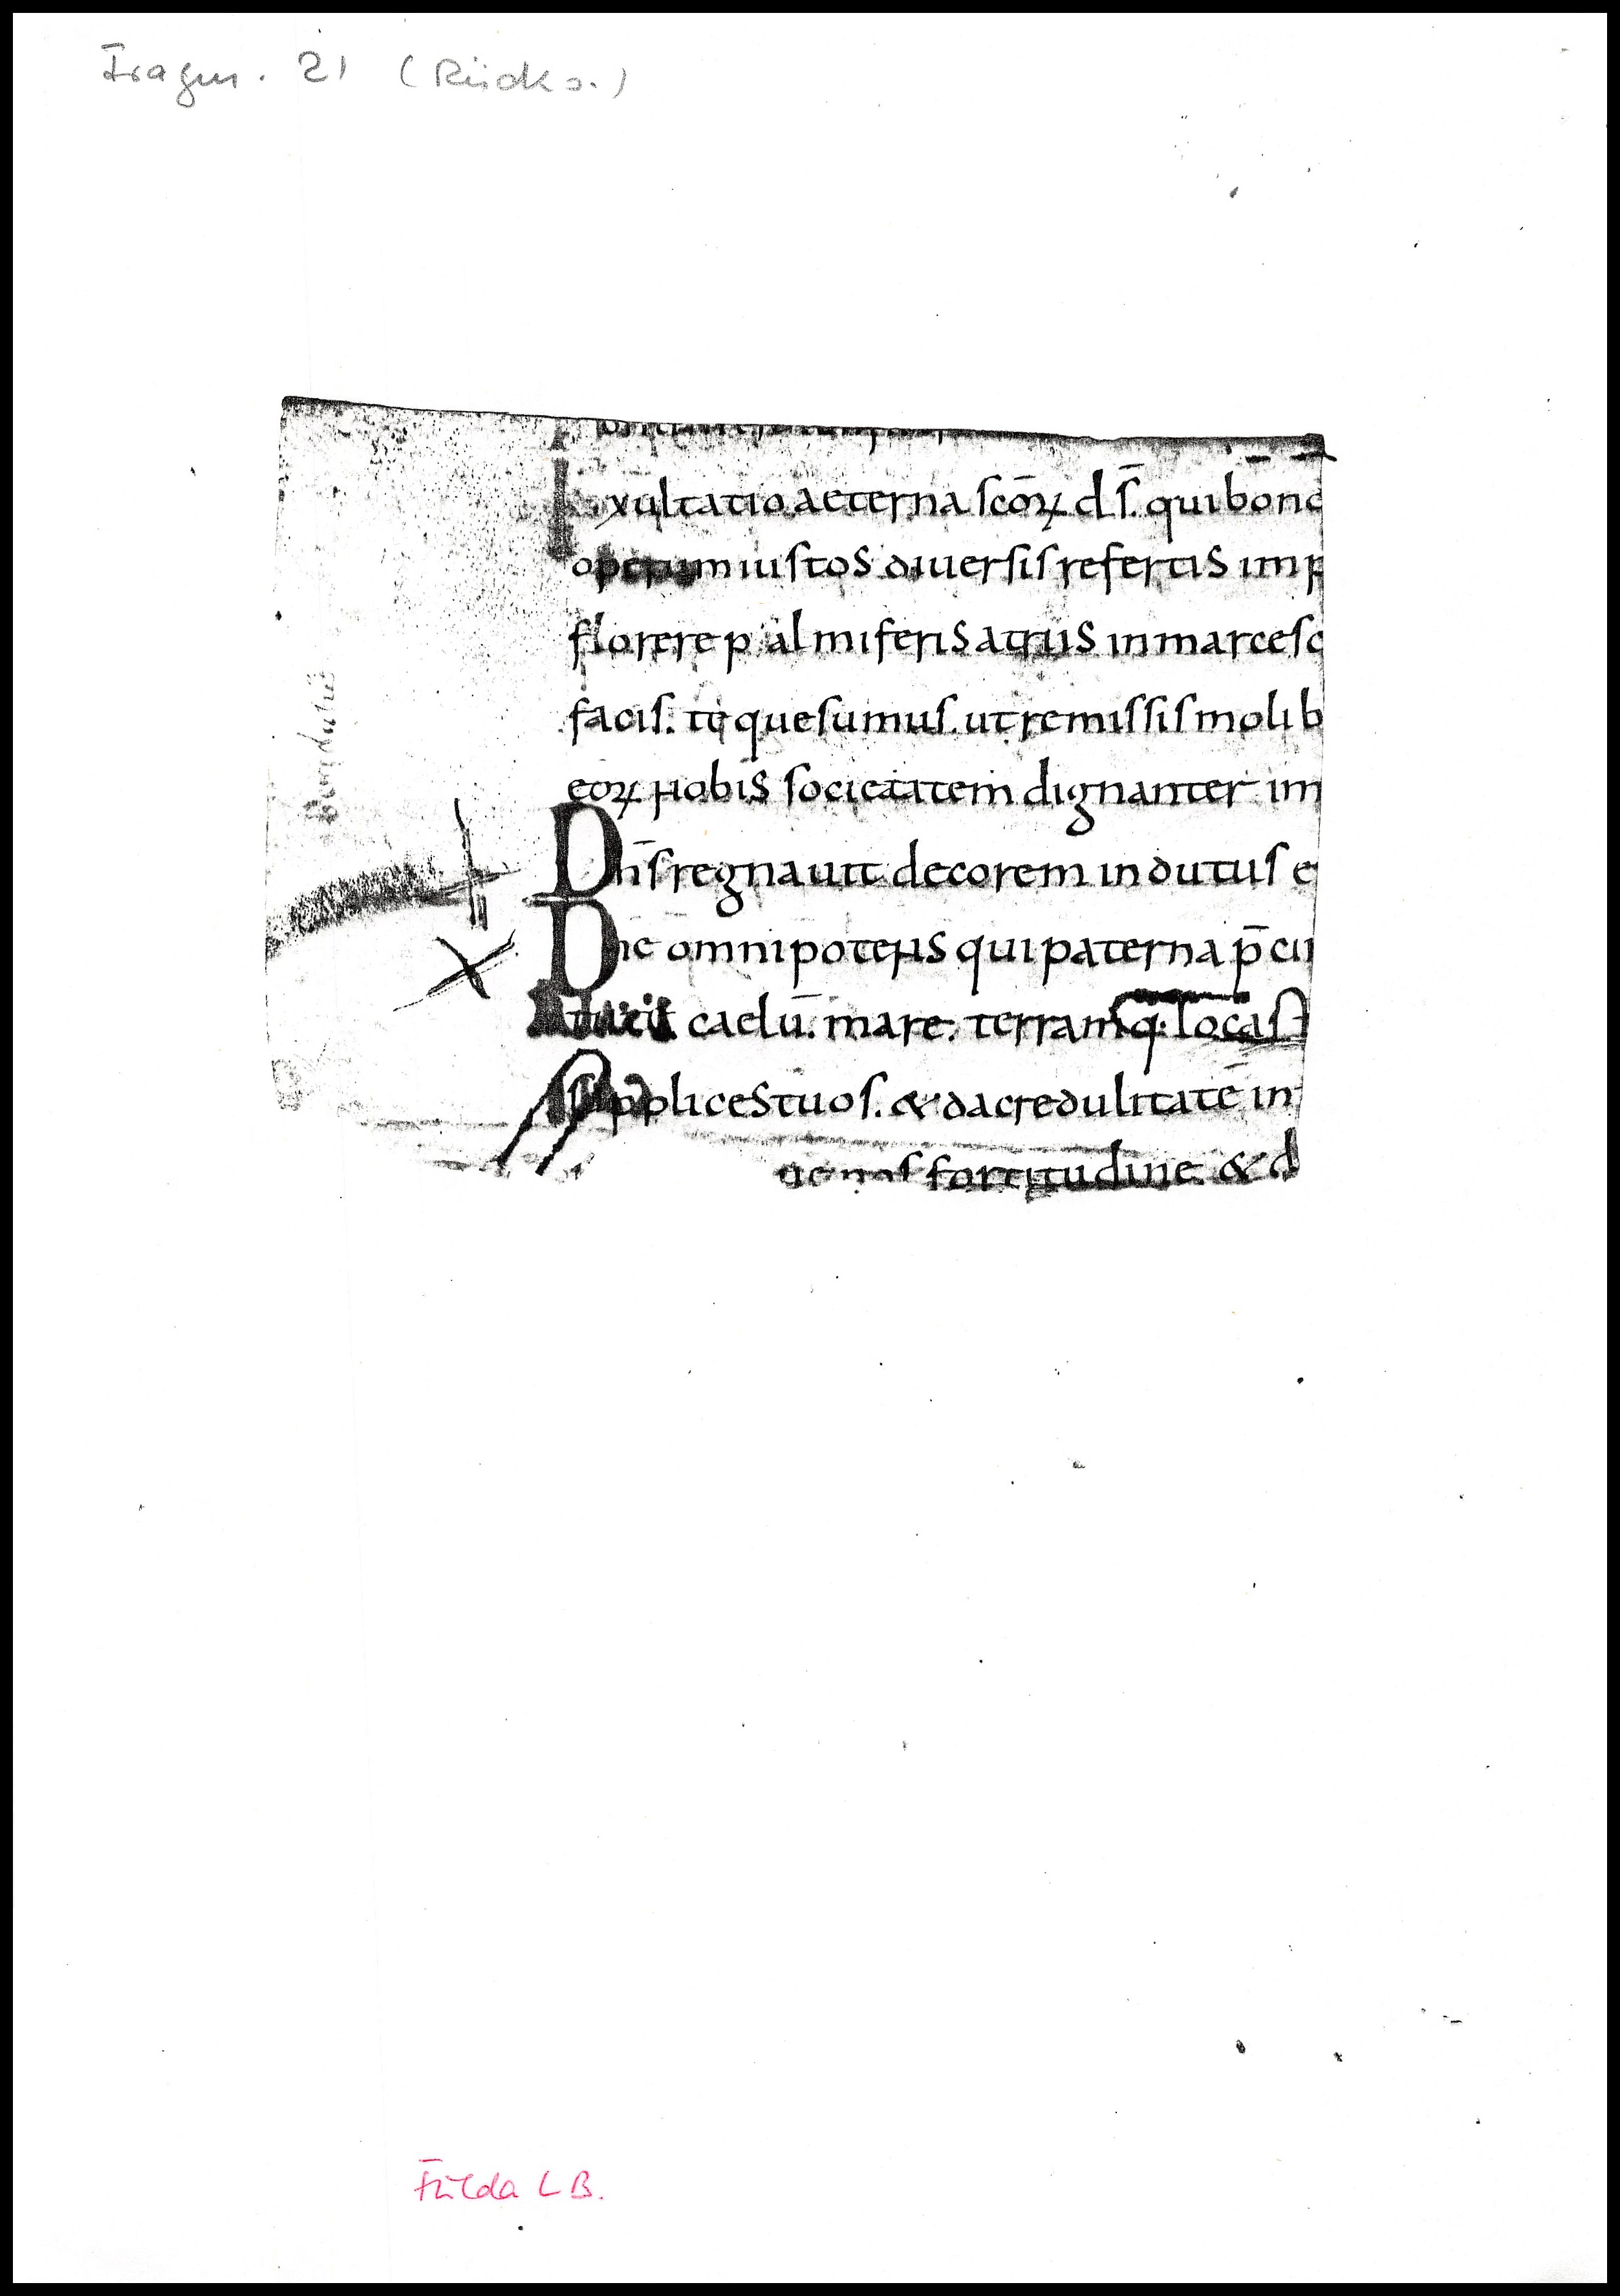 Fragm. 21 (Rücks.)
Exultatio aeterna scōꝝ dſ̄. qui bono
operum iuſtoS diuerſiſ refertiS imp
florere p almiferiS atriiS inmarceſc
faciſ. te queſumuſ. ut remiſſiſ molib
eoꝝ nobiS ſocietatem dignanter im
Dn̄ſ regnauit decorem indutuſ e
Dn̄e omnipotenS qui paterna p̄ cu
caelū. mare. terramq; locaſt
ſuppliceStuoſ. & da credulitatē in
noſ fortitudine. & d
Fulda LB.